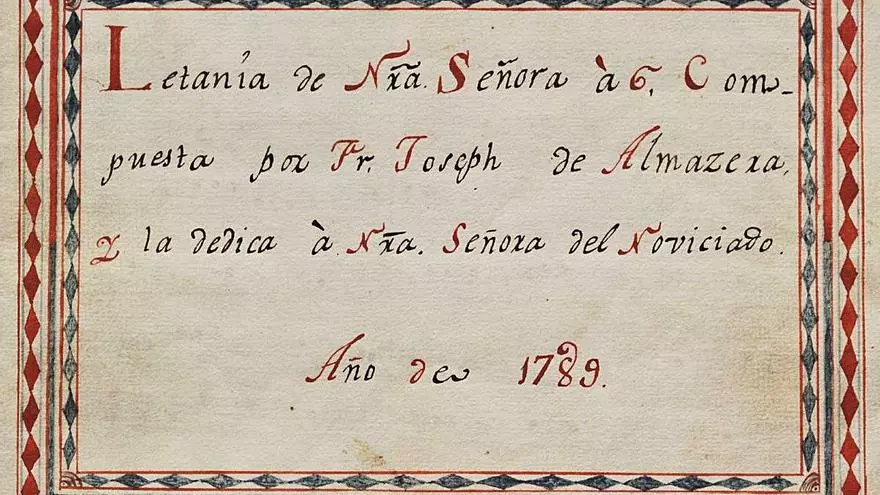 Letanía de Nrã. Señora à 6. Com-
puesta por Fr. Joseph de Almazera,
y la dedica à Nrã. Señora del Noviciado.
Año de 1789.